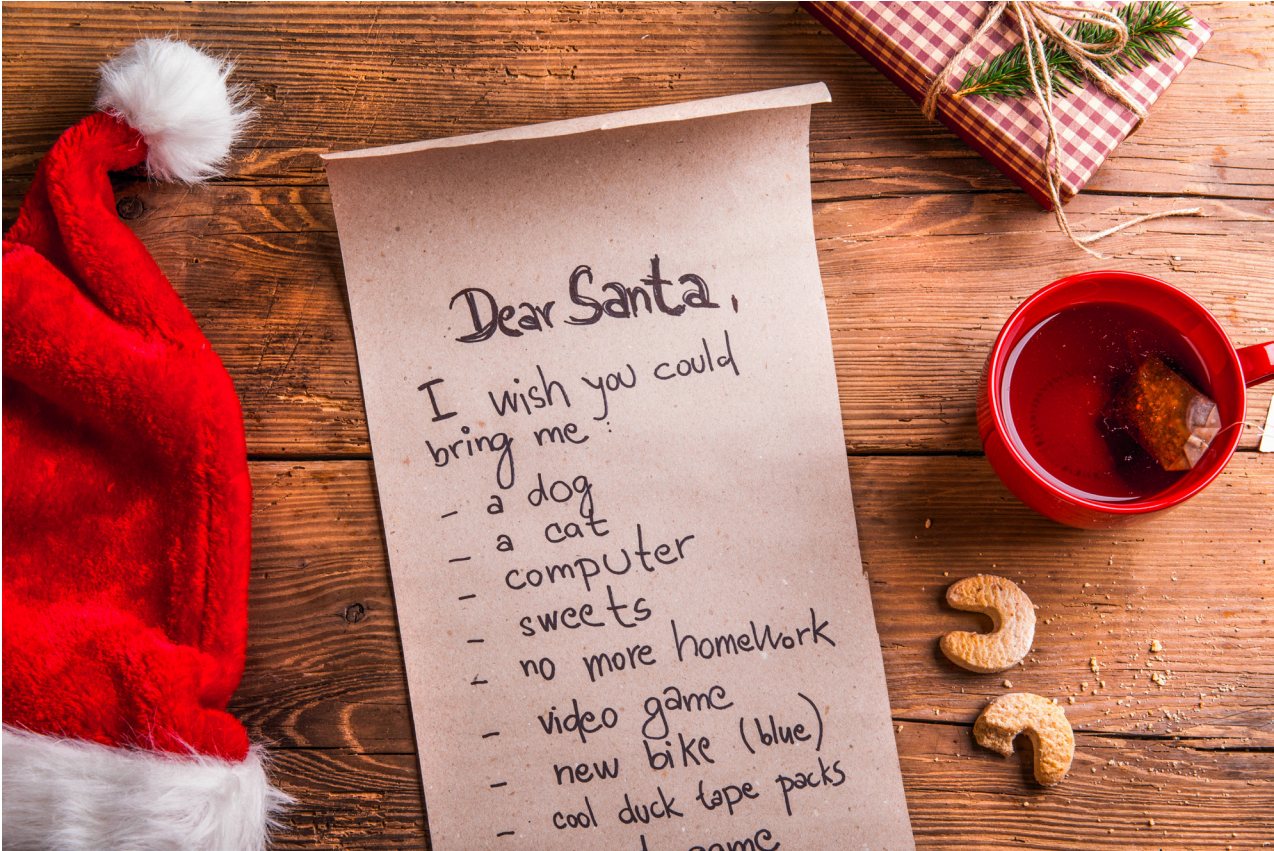 Dear Santa,
I wish you could
bring me:
- a dog
- a cat
- computer
- sweets
- no more homework
- video game
- new bike (blue)
- cool duck tape packs
game